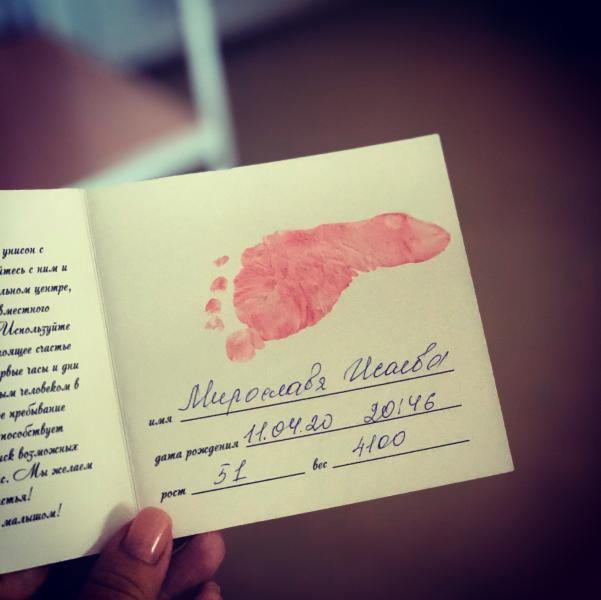 унисон с
йтесь с ним и
льном центре,
вместного
Используйте
тоящее счастье
рвые часы и дни
ым человеком в
е пребывание
пособствует
иск возможных
с. Мы желаем
стья!
малышом!
имя Мирослава Исаева
дата рождения 11.04.20 20:46
рост 51 вес 4100